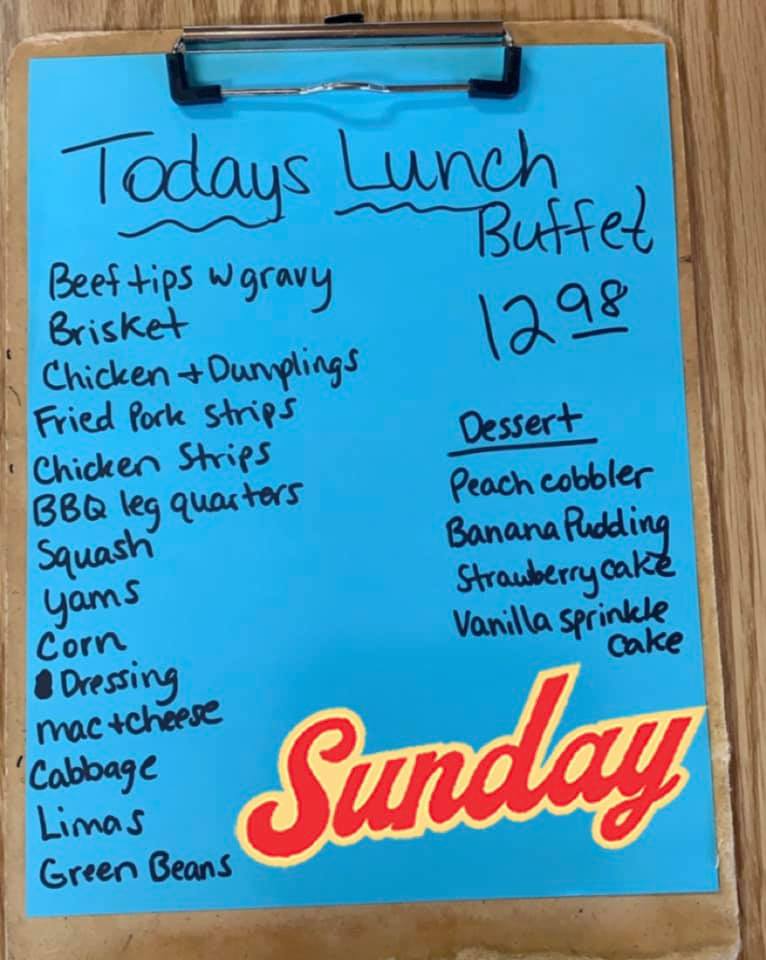 Todays Lunch
Buffet
12 98
Beef tips w gravy
Brisket
Chicken + Dumplings
Fried Pork strips
Chicken Strips
BBQ leg quarters
Squash
yams
Corn
Dressing
mac + cheese
Cabbage
Limas
Green Beans
Dessert
Peach cobbler
Banana Pudding
Strawberry cake
Vanilla sprinkle
cake
Sunday